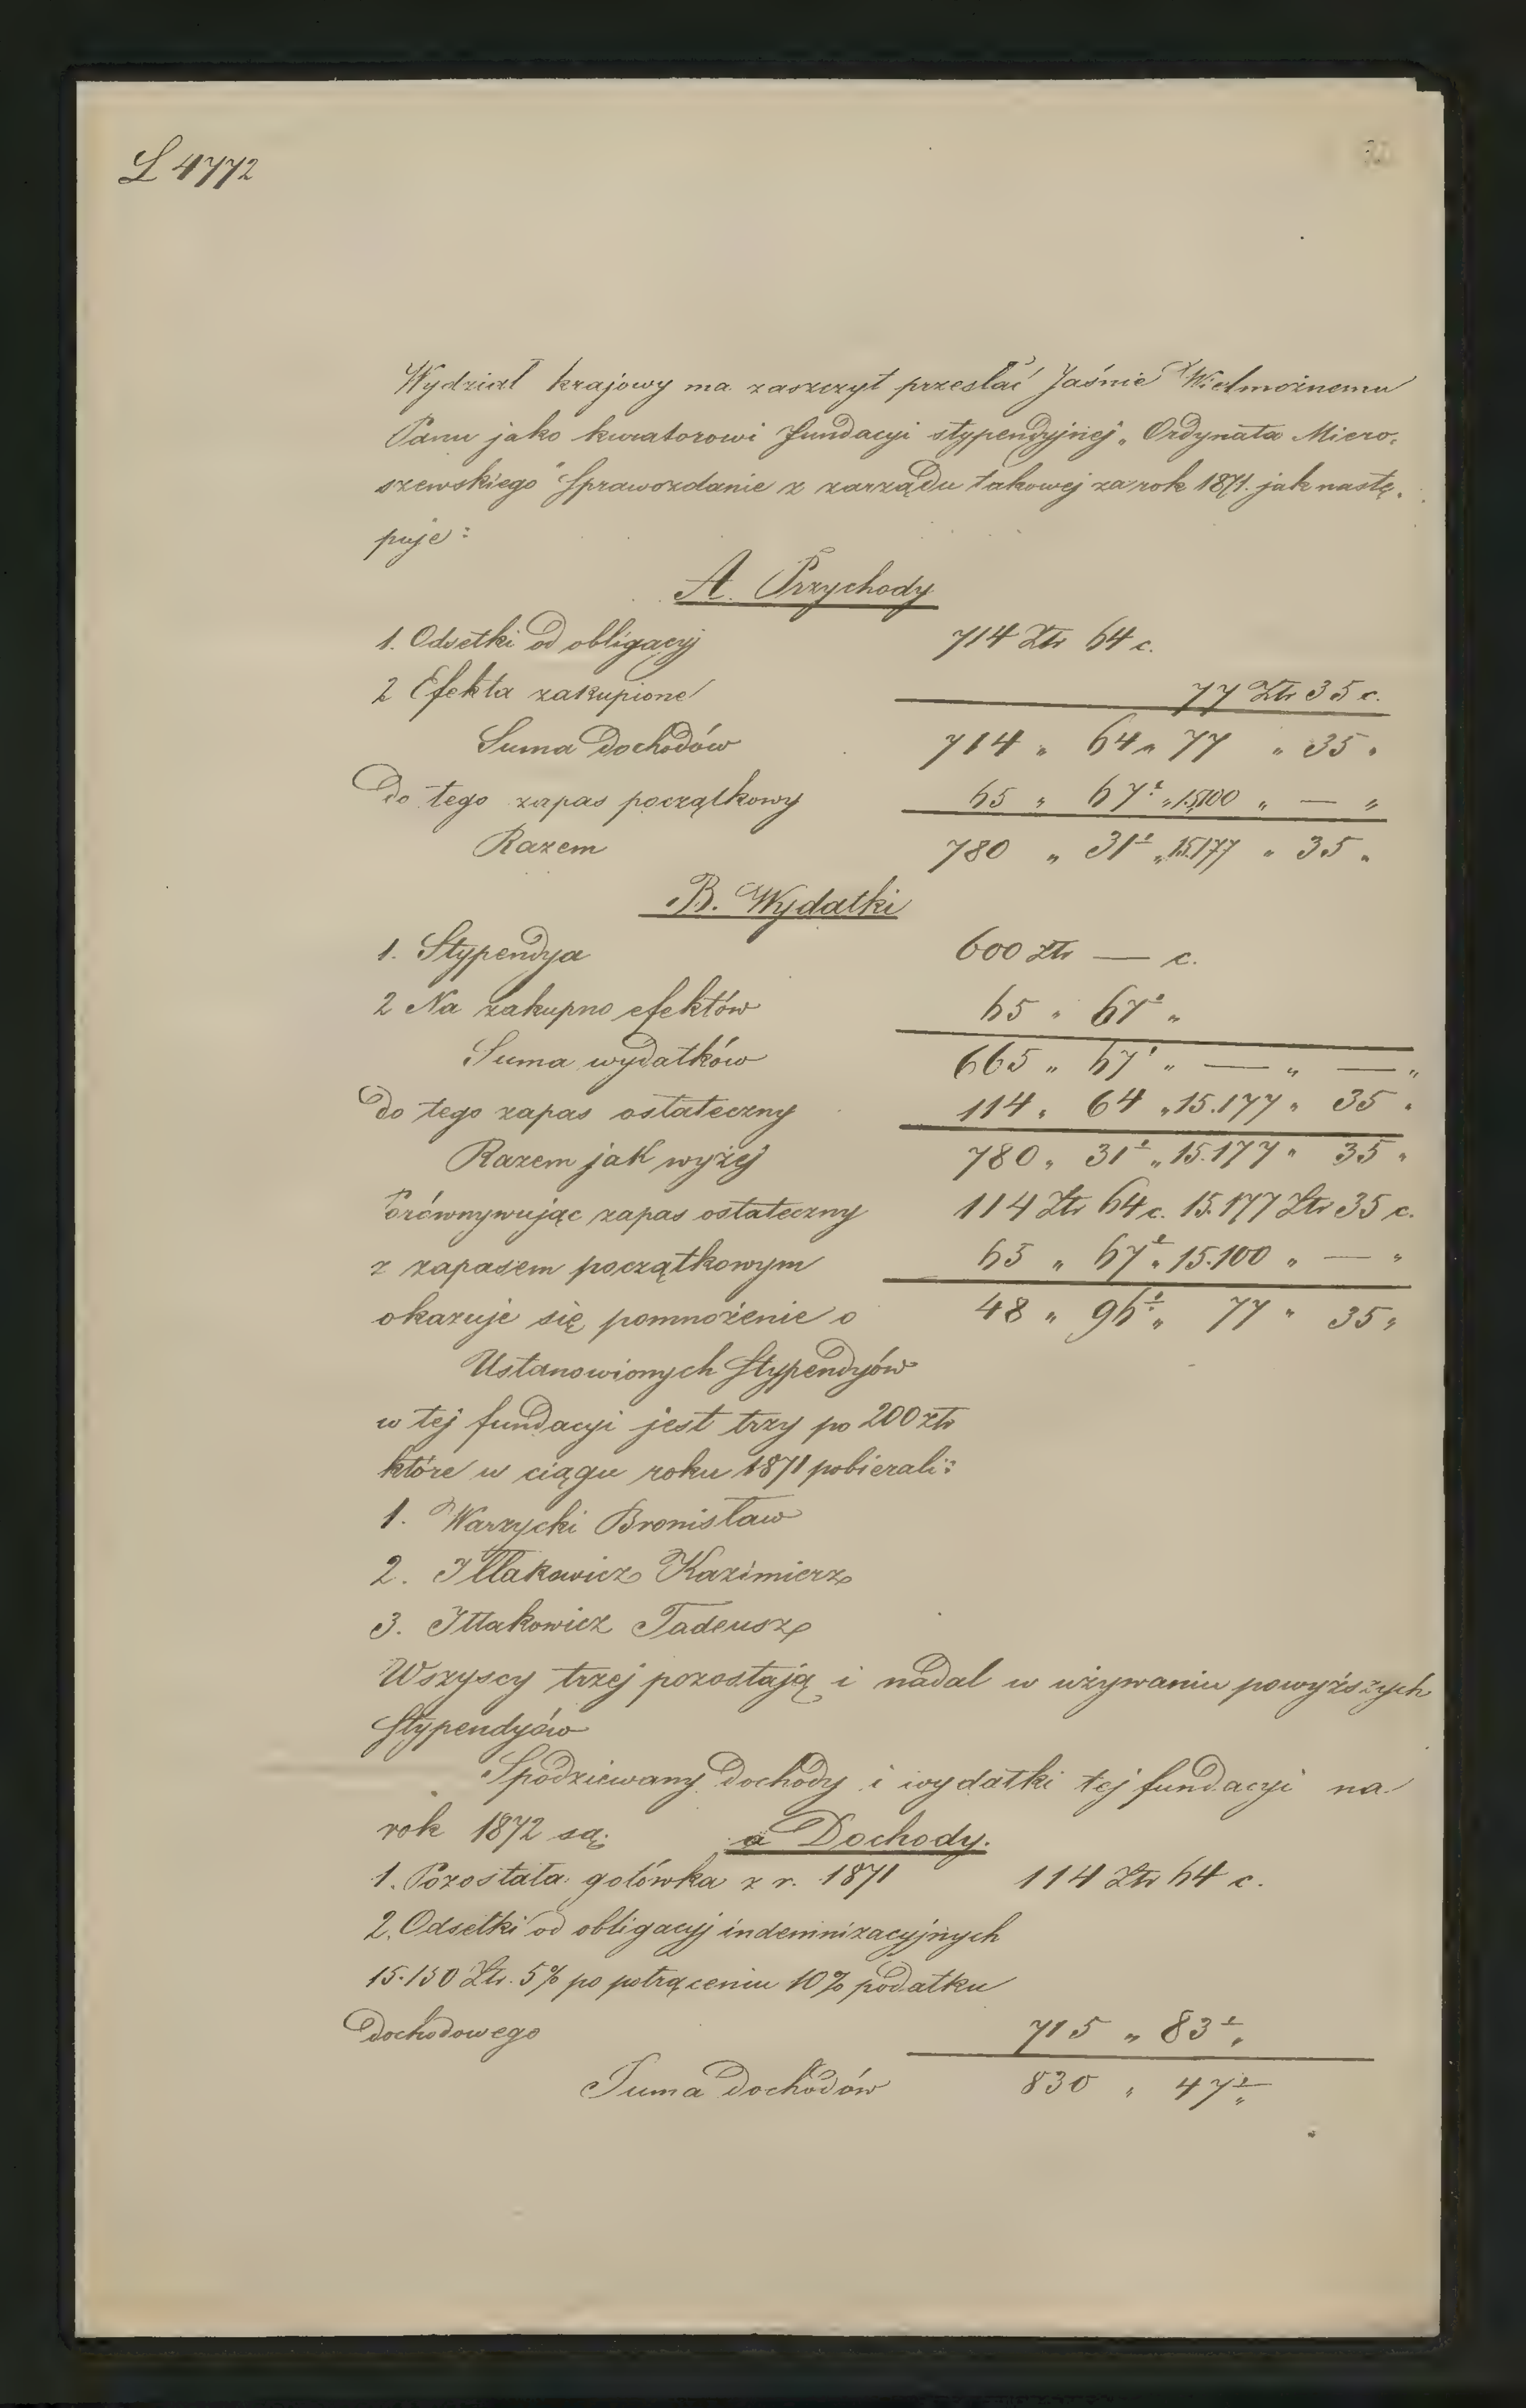 L 4772
Wydział krajowy ma zaszczyt przesłać Jaśnie Wielmożnemu
Panu jako kuratorowi fundacyi stypendyjnej „Ordynata Miero-
szewskiego" Sprawozdanie z zarządu takowej za rok 1871. jak nastę-
puje:
A. Przychody
1. Odsetki od obligacyj 714 Ztr 64 c.
2 Efekta zakupione 77 Ztr 35 c.
Suma dochodów 714 „ 64 „ 77 „ 35 „
Do tego zapas początkowy 65 „ 67½ „ 15.100 „ — „
Razem 780 „ 31½ „ 15.177 „ 35 „
B. Wydatki
1. Stypendya 600 Ztr — c.
2 Na zakupno efektów 65 „ 67½ „
Suma wydatków 665 „ 67½ „ — „ — „
Do tego zapas ostateczny 114 „ 64 „ 15.177 „ 35 „
Razem jak wyżej 780 „ 31½ „ 15.177 „ 35 „
Porównywując zapas ostateczny 114 Ztr 64 c. 15.177 Ztr 35 c.
z zapasem początkowym 65 „ 67½ „ 15.100 „ — „
okazuje się pomnożenie o 48 „ 96½ „ 77 „ 35 „
Ustanowionych Stypendyów
w tej fundacyi jest trzy po 200 ztr
które w ciągu roku 1871 pobierali:
1. Warzycki Bronisław
2. Iłłakowicz Kazimierz
3. Iłłakowicz Tadeusz
Wszyscy trzej pozostają i nadal w używaniu powyższych
Stypendyów
Spodziewany dochody i wydatki tej fundacyi na
rok 1872 są: a Dochody.
1. Pozostała gotówka z r. 1871 114 Ztr 64 c.
2. Odsetki od obligacyj indemnizacyjnych
15.150 Ztr. 5% po potrąceniu 10% podatku
dochodowego 715 „ 83½ „
Suma dochodów 830 „ 47½ „